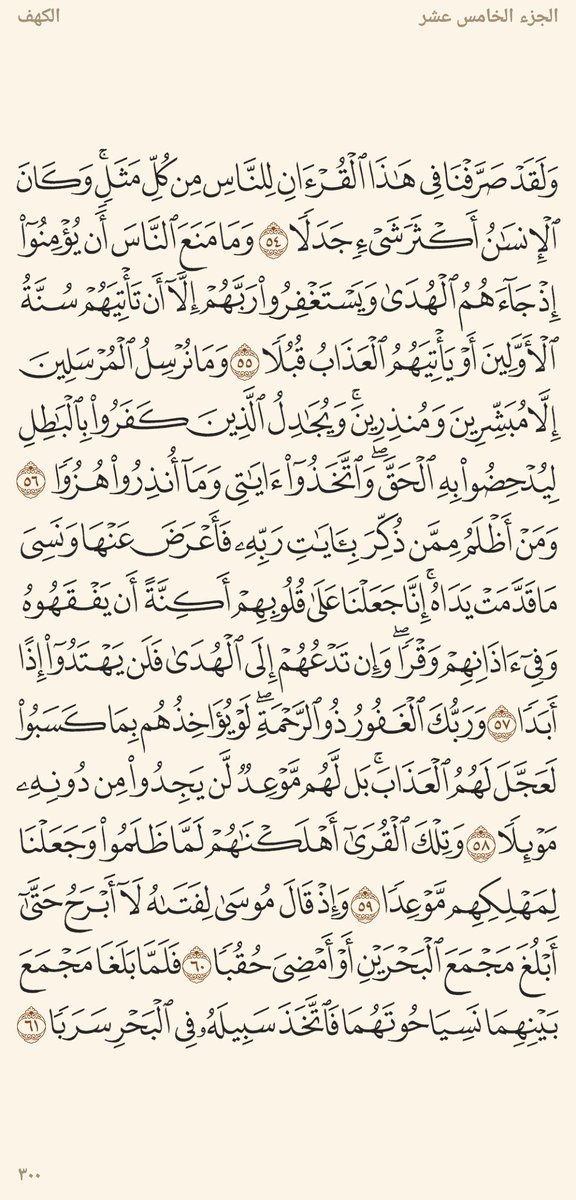 الجزء الخامس عشر
الكهف
وَلَقَدۡ صَرَّفۡنَا فِي هَٰذَا ٱلۡقُرۡءَانِ لِلنَّاسِ مِن كُلِّ مَثَلٖۚ وَكَانَ
ٱلۡإِنسَٰنُ أَكۡثَرَ شَيۡءٖ جَدَلٗا ٥٤ وَمَا مَنَعَ ٱلنَّاسَ أَن يُؤۡمِنُوٓاْ
إِذۡ جَآءَهُمُ ٱلۡهُدَىٰ وَيَسۡتَغۡفِرُواْ رَبَّهُمۡ إِلَّآ أَن تَأۡتِيَهُمۡ سُنَّةُ
ٱلۡأَوَّلِينَ أَوۡ يَأۡتِيَهُمُ ٱلۡعَذَابُ قُبُلٗا ٥٥ وَمَا نُرۡسِلُ ٱلۡمُرۡسَلِينَ
إِلَّا مُبَشِّرِينَ وَمُنذِرِينَۚ وَيُجَٰدِلُ ٱلَّذِينَ كَفَرُواْ بِٱلۡبَٰطِلِ
لِيُدۡحِضُواْ بِهِ ٱلۡحَقَّۖ وَٱتَّخَذُوٓاْ ءَايَٰتِي وَمَآ أُنذِرُواْ هُزُوٗا ٥٦
وَمَنۡ أَظۡلَمُ مِمَّن ذُكِّرَ بِـَٔايَٰتِ رَبِّهِۦ فَأَعۡرَضَ عَنۡهَا وَنَسِيَ
مَا قَدَّمَتۡ يَدَاهُۚ إِنَّا جَعَلۡنَا عَلَىٰ قُلُوبِهِمۡ أَكِنَّةً أَن يَفۡقَهُوهُ
وَفِيٓ ءَاذَانِهِمۡ وَقۡرٗاۖ وَإِن تَدۡعُهُمۡ إِلَى ٱلۡهُدَىٰ فَلَن يَهۡتَدُوٓاْ إِذًا
أَبَدٗا ٥٧ وَرَبُّكَ ٱلۡغَفُورُ ذُو ٱلرَّحۡمَةِۖ لَوۡ يُؤَاخِذُهُم بِمَا كَسَبُواْ
لَعَجَّلَ لَهُمُ ٱلۡعَذَابَۚ بَل لَّهُم مَّوۡعِدٞ لَّن يَجِدُواْ مِن دُونِهِۦ
مَوۡئِلٗا ٥٨ وَتِلۡكَ ٱلۡقُرَىٰٓ أَهۡلَكۡنَٰهُمۡ لَمَّا ظَلَمُواْ وَجَعَلۡنَا
لِمَهۡلِكِهِم مَّوۡعِدٗا ٥٩ وَإِذۡ قَالَ مُوسَىٰ لِفَتَىٰهُ لَآ أَبۡرَحُ حَتَّىٰٓ
أَبۡلُغَ مَجۡمَعَ ٱلۡبَحۡرَيۡنِ أَوۡ أَمۡضِيَ حُقُبٗا ٦٠ فَلَمَّا بَلَغَا مَجۡمَعَ
بَيۡنِهِمَا نَسِيَا حُوتَهُمَا فَٱتَّخَذَ سَبِيلَهُۥ فِي ٱلۡبَحۡرِ سَرَبٗا ٦١
٣٠٠